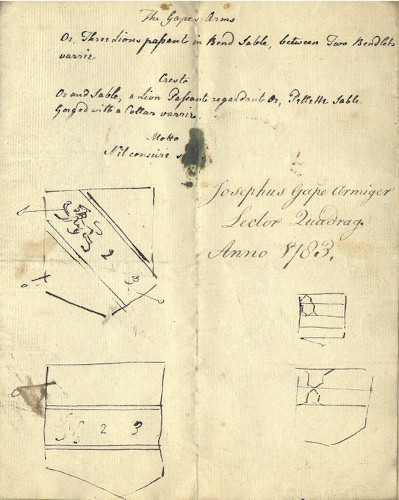 The Gape's Arms
Or, Three Lions passant in Bend Sable, between Two Bendlets
varrie
Crests
Or and Sable, a Lion Passant regardant Or, Pellette Sable
Gorged with a Collar varrie.
Motto
Nil conscire s
Josephus Gape Armiger
Lector Quadrag.
Anno 1783.
2
3
2 3